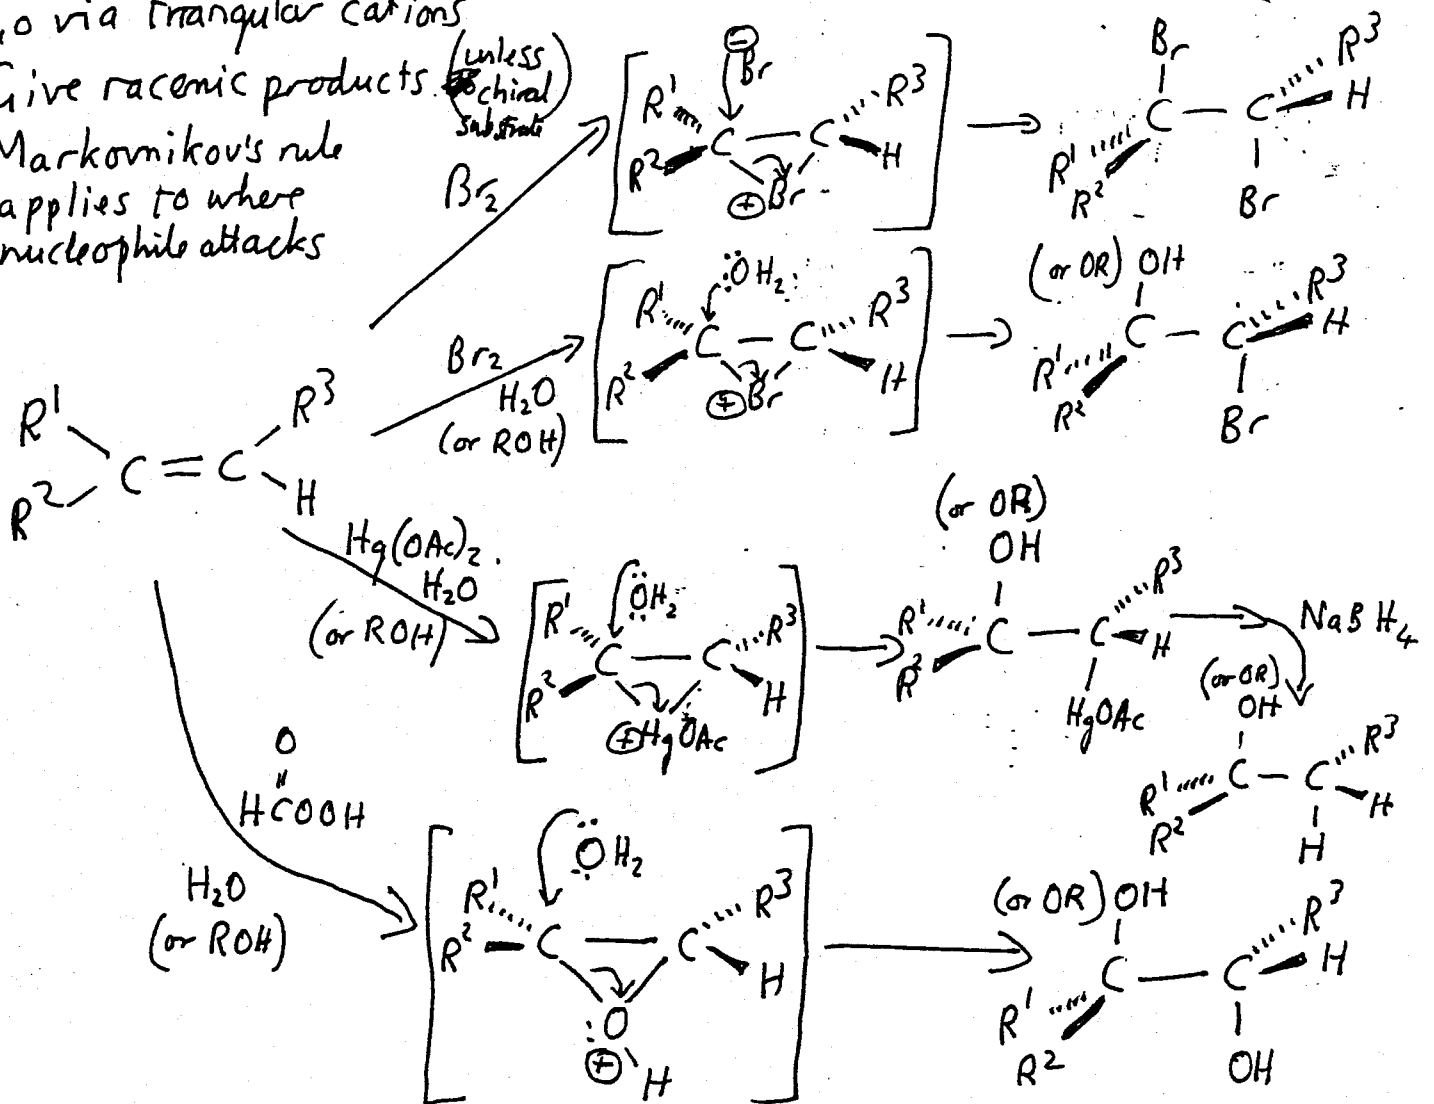 go via triangular cations
Give racemic products. (unless chiral substrate)
Markovnikov's rule
applies to where
nucleophile attacks
Br₂
[R¹ R² C — C R³ H Br ⊕ Br ⊖]
Br R¹ R² C — C R³ H Br
Br₂
H₂O
(or ROH)
[R¹ R² C — C R³ H Br ⊕ ÖH₂]
(or OR) OH
R¹ R² C — C R³ H Br
R¹ R² C = C R³ H
Hg(OAc)₂.
H₂O
(or ROH)
[R¹ R² C — C R³ H ⊕ HgOAc ÖH₂]
(or OR)
OH
R¹ R² C — C R³ H
HgOAc
NaBH₄
(or OR)
OH
R¹ R² C — C R³ H
H
O
"
HCOOH
H₂O
(or ROH)
[R¹ R² C — C R³ H O ⊕ H ÖH₂]
(or OR) OH
R¹ R² C — C R³ H
OH